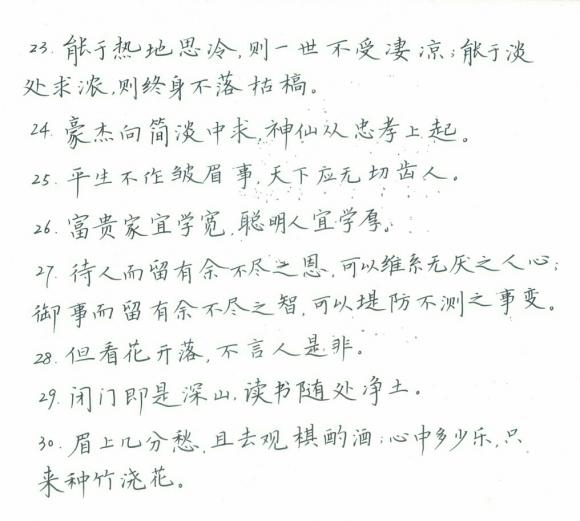 23. 能于热地思冷,则一世不受凄凉;能于淡
处求浓,则终身不落枯槁。
24. 豪杰向简淡中求,神仙从忠孝上起。
25. 平生不作皱眉事,天下应无切齿人。
26. 富贵家宜学宽,聪明人宜学厚。
27. 待人而留有余不尽之恩,可以维系无厌之人心;
御事而留有余不尽之智,可以堤防不测之事变。
28. 但看花开落,不言人是非。
29. 闭门即是深山,读书随处净土。
30. 眉上几分愁,且去观棋酌酒;心中多少乐,只
来种竹浇花。